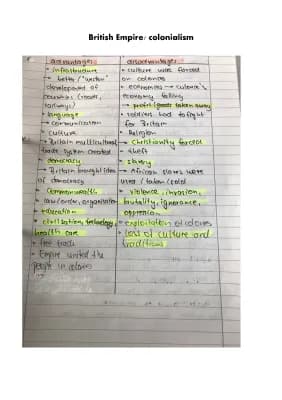 British Empire/ colonialism
advantages
• infrastructure
→ better/"western"
developed of
countries (roads,
railways)
• language
→ communication
• culture
→ Britain multicultural
trade system created
• democracy
→ Britain brought idea
of democracy
• Commonwealth
• law/order, organisation
• education
• civilisation, technology,
health care
• free trade
• Empire united the
people in colonies
disadvantages
• culture was forced
on colonies
• economies → colonie's
economy falling
→ profit/goods taken away
• soldiers had to fight
for Britain
• Religion
→ Christianity forced
• theft
• slavery
→ African slaves were
used / taken / sold
• violence, invasion,
brutality, ignorance,
oppression
• exploitation of colonies
• loss of culture and
traditions